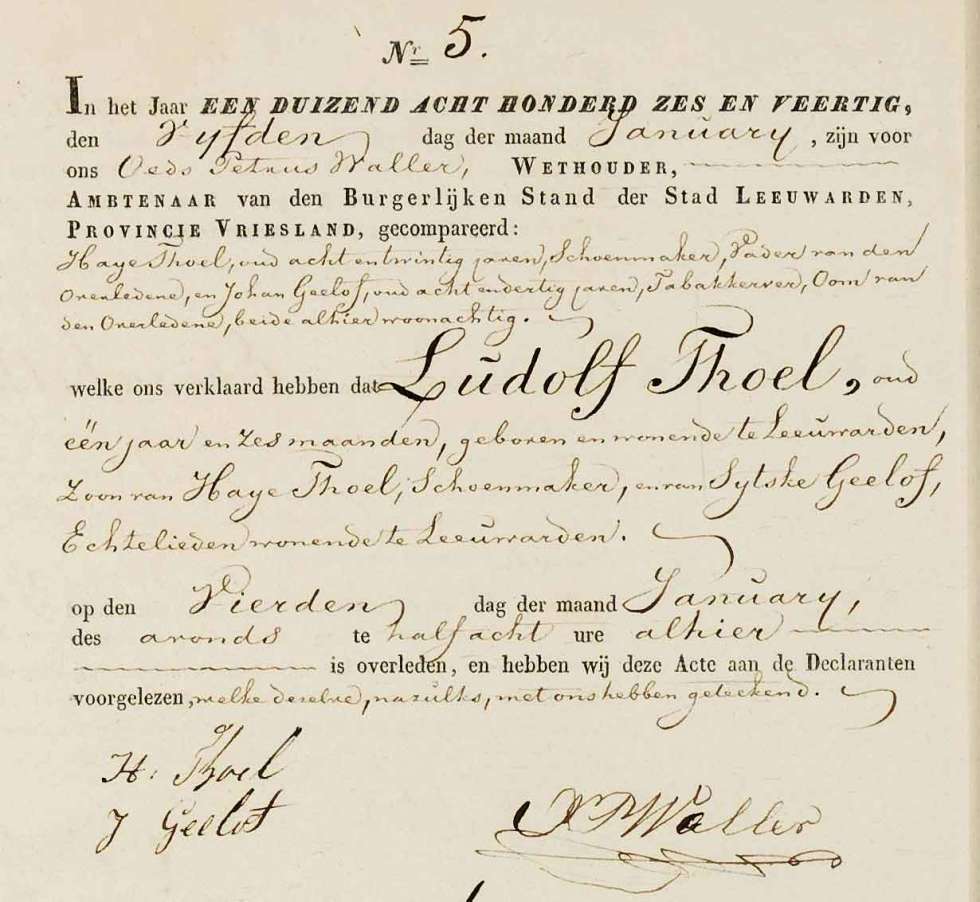 Nr. 5.
In het Jaar EEN DUIZEND ACHT HONDERD ZES EN VEERTIG,
den Vyfden dag der maand January, zijn voor
ons Oeds Petrus Waller, WETHOUDER,
AMBTENAAR van den Burgerlijken Stand der Stad LEEUWARDEN,
PROVINCIE VRIESLAND, gecompareerd:
Haye Thoel, oud acht en twintig jaren, Schoenmaker, Vader van den
Overledene, en Johan Geelof, oud acht en dertig jaren, Tabakkerver, Oom van
den Overledene, beide alhier woonachtig.
welke ons verklaard hebben dat Ludolf Thoel, oud
één jaar en zes maanden, geboren en wonende te Leeuwarden,
Zoon van Haye Thoel, Schoenmaker, en van Sytske Geelof,
Echtelieden wonende te Leeuwarden.
op den Vierden dag der maand January,
des avonds te half acht ure alhier
is overleden, en hebben wij deze Acte aan de Declaranten
voorgelezen, welke dezelve, nazulks, met ons hebben geteekend.
H. Thoel
J Geelof
OPWaller